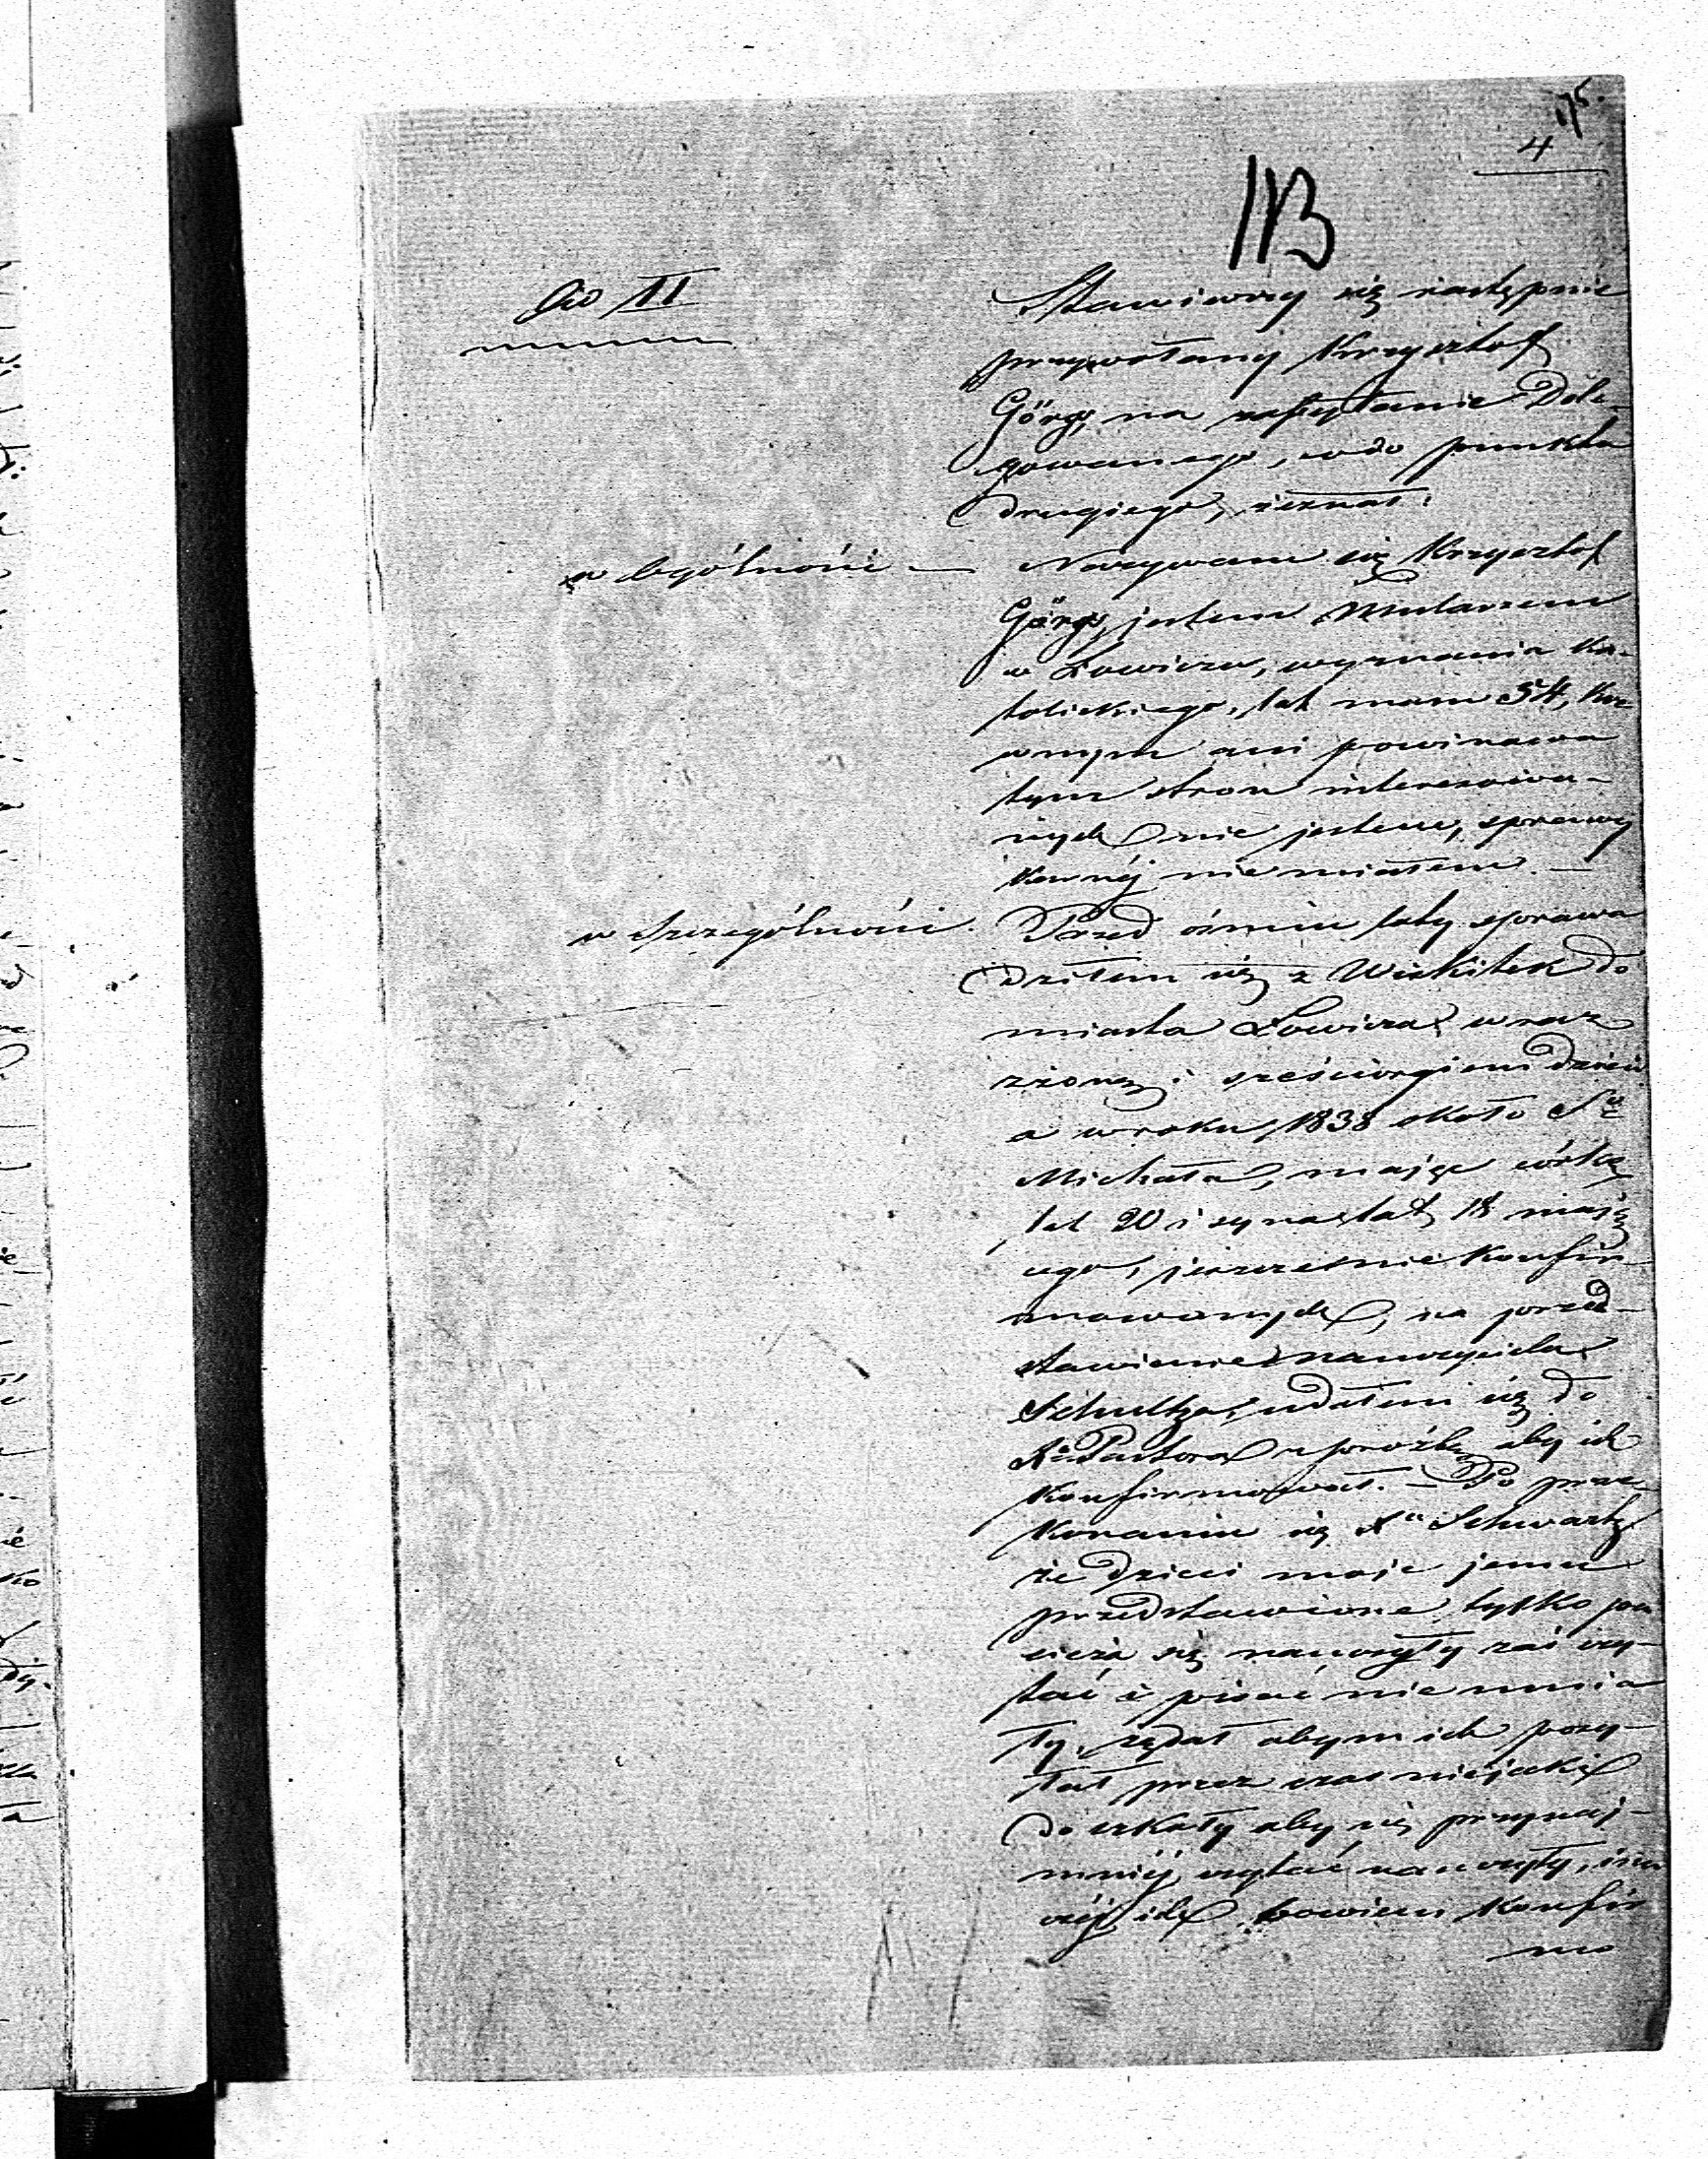 175.
4
113
Ad II
Stawiwszy się następnie
przywołany Krzysztof
Görgs, na zapytanie Dele-
gowanego, co do punktu
drugiego, zeznał:
w Ogólności — Nazywam się Krzysztof
Görgs, jestem Mularzem
w Łowiczu, wyznania Ka-
tolickiego, lat mam 54, Kre
wnym ani powinowa
tym stron interesowa-
nych nie jestem, sprawy
karnéj nie miałem. —
w Szczególności. Przed ośmiu laty sprowa
dziłem się z Wiskitek do
miasta Łowicza wraz
z żoną i sześciorgiem dzieci
a w roku 1838 około Sgo
Michała, mając córkę
lat 20 i syna lat 18 mają
cego, jeszcze nie Konfir-
mowanych, na przed-
stawienie nauczyciela
Schultza, udałem się do
Xa Pastora z prośbą aby ich
Konfirmował. — Po prze-
konaniu się Xa Schwartz
że dzieci moje jemu
przedstawione tylko pa
cierza się nauczyły zaś czy-
tać i pisać nie umia
ły, żądał abym ich posy-
łał przez czas niejaki
do szkoły aby się przynaj-
mniéj czytać nauczyły, ina
czéj ich bowiem Konfir
mo